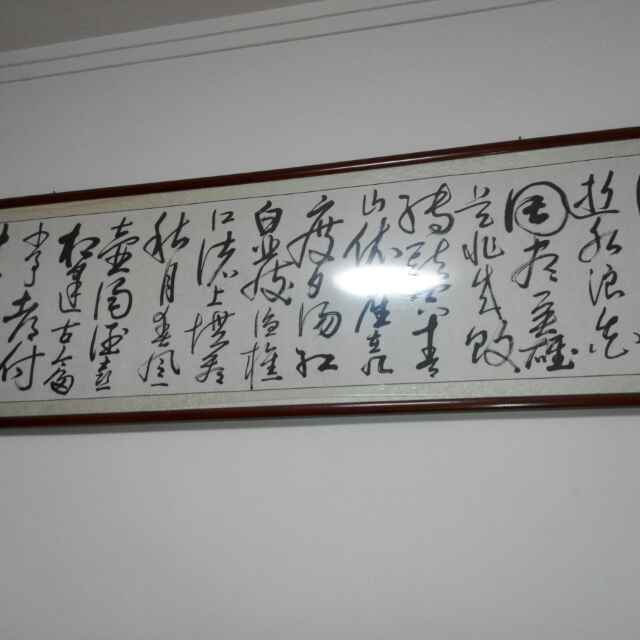 逝水浪花
淘尽英雄
是非成败
转头空青
山依旧在几
度夕阳红
白发渔樵
江渚上惯看
秋月春风
壶浊酒喜
相逢古今多
少事都付